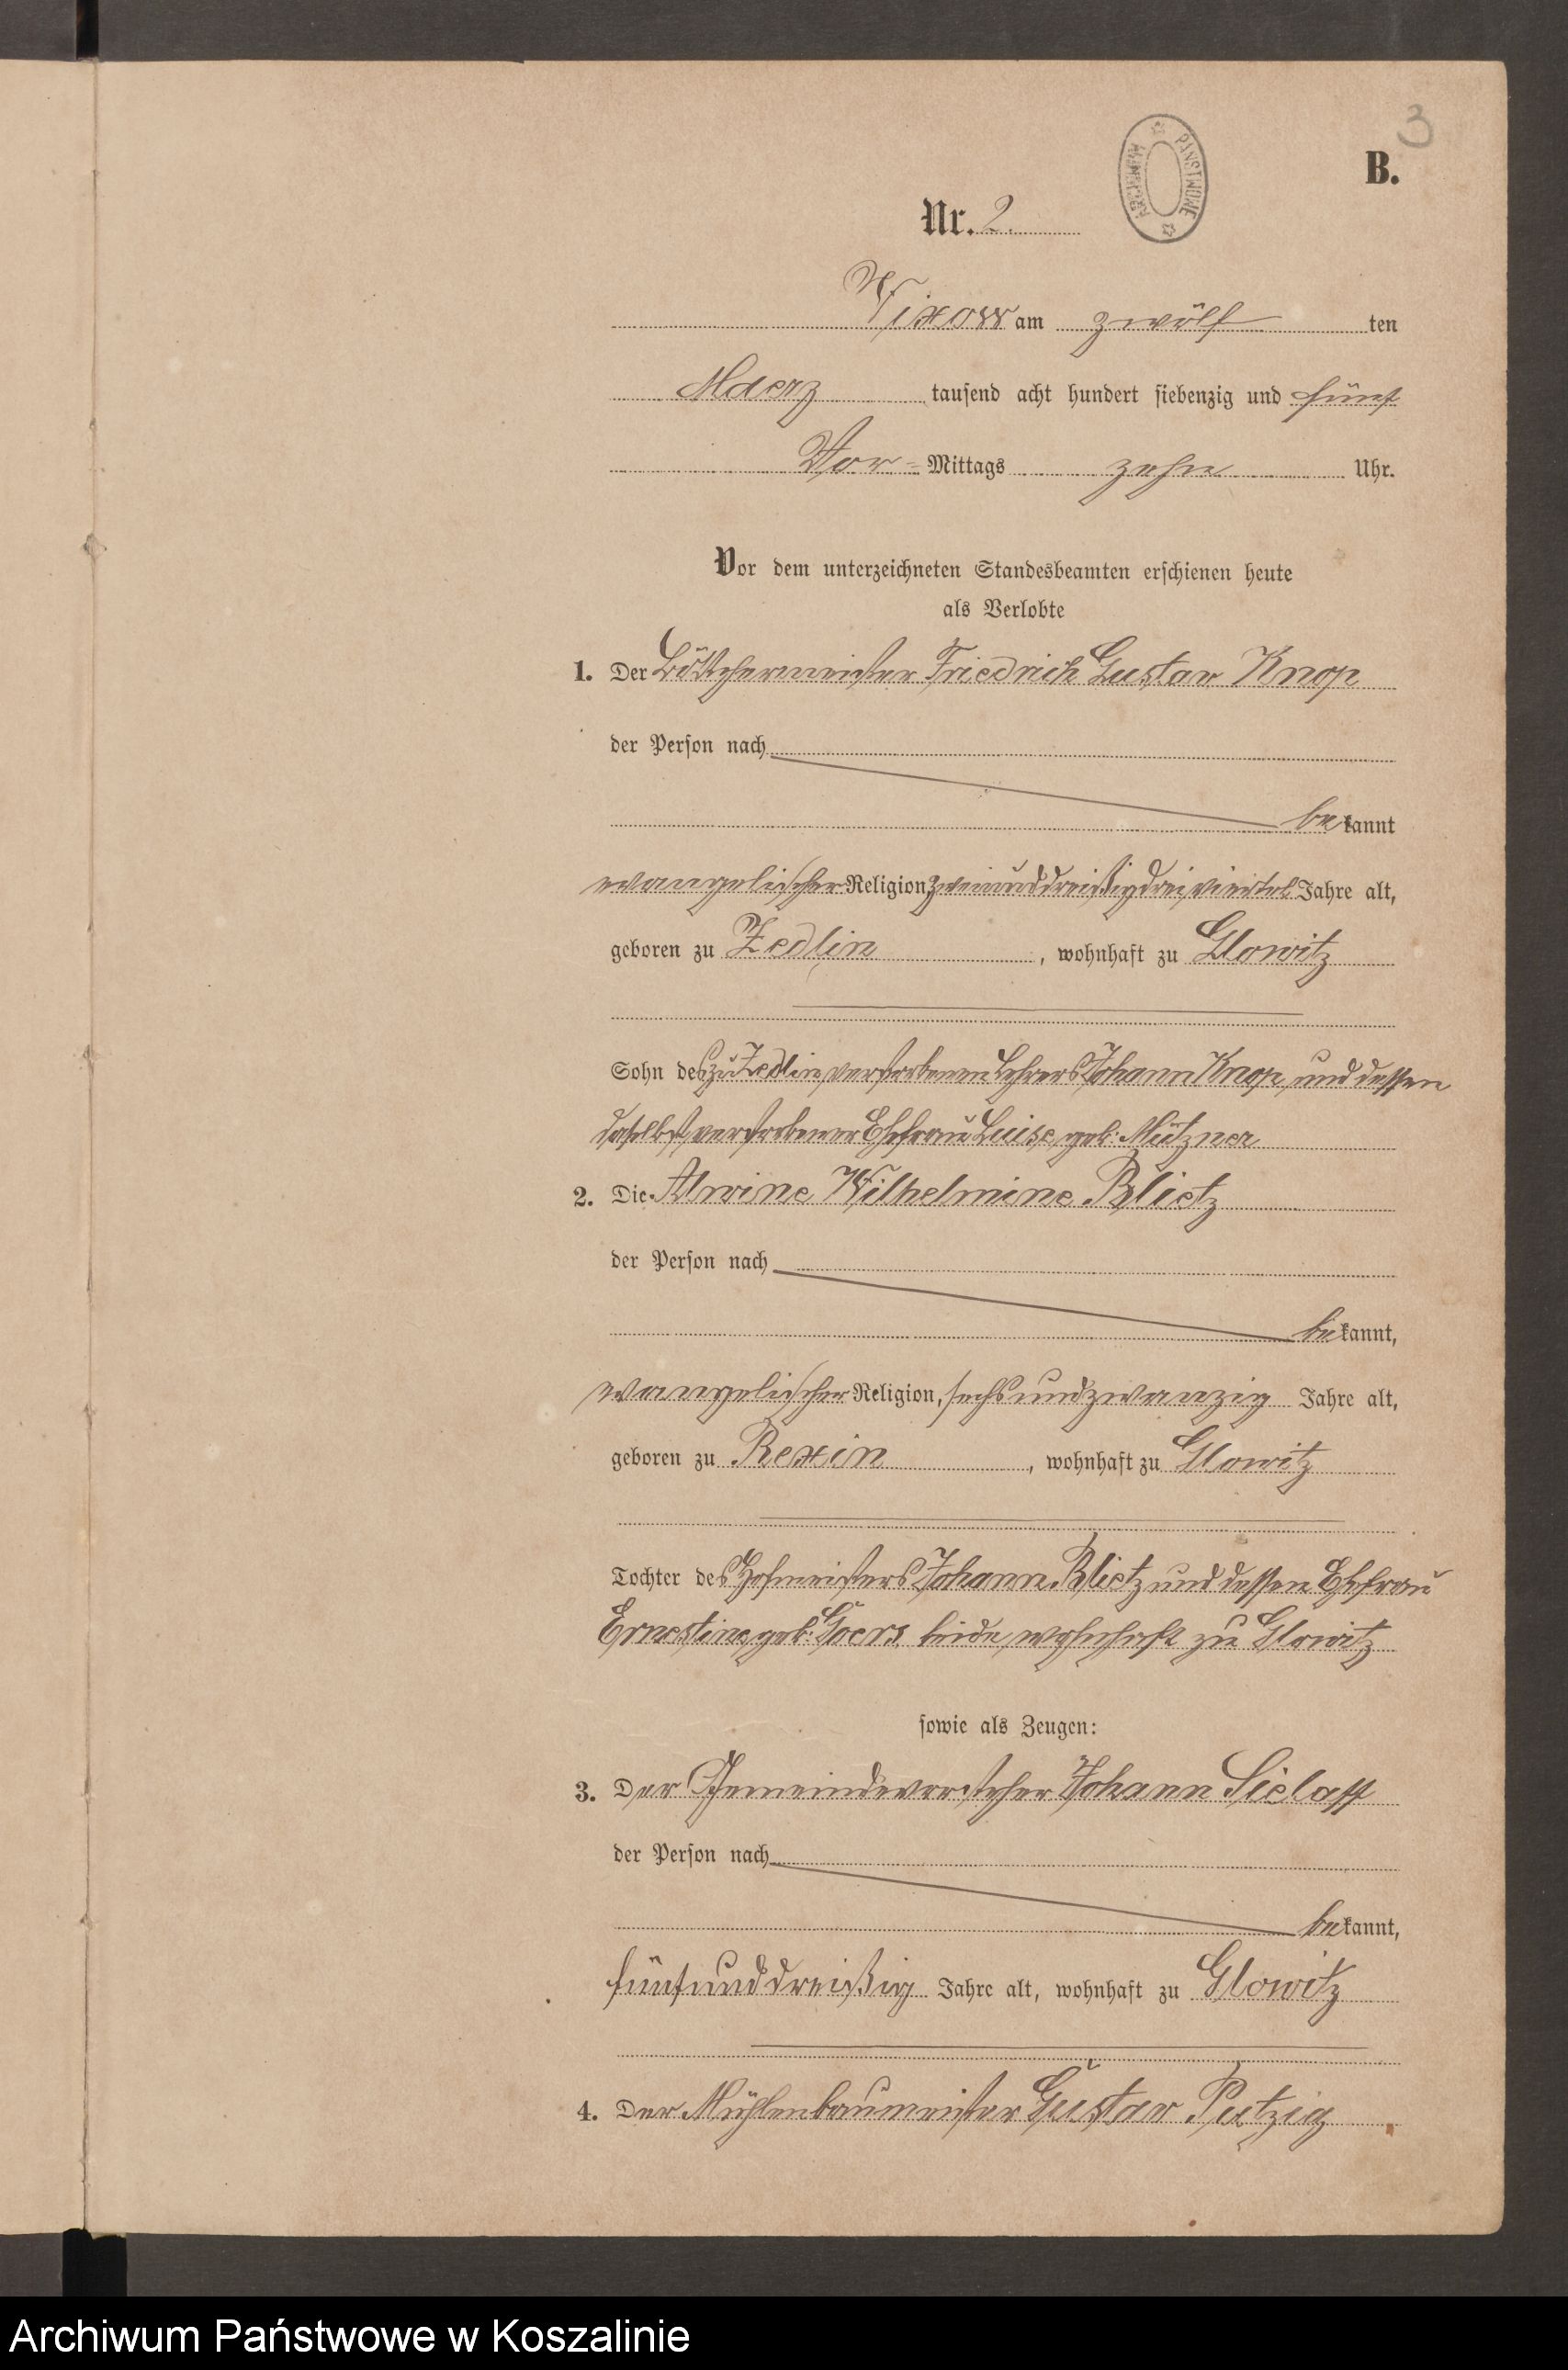 3
B.
PAŃSTWOWE ARCHIWUM
Nr. 2.
Wixow am zwölf ten
Maerz tausend acht hundert siebenzig und fünf
Vor= Mittags zehn Uhr.
Vor dem unterzeichneten Standesbeamten erschienen heute
als Verlobte
1. Der Böttchermeister Friedrich Gustav Knop
der Person nach
bekannt
evangelischer Religion zweiunddreißigdreiviertel Jahre alt,
geboren zu Zedlin, wohnhaft zu Glowitz
Sohn des zu Zedlin verstorbenen Lehrers Johann Knop und dessen
daselbst verstorbener Ehefrau Luise geb. Mützner
2. Die Alwine Wilhelmine Blietz
der Person nach
bekannt,
evangelischer Religion, sechsundzwanzig Jahre alt,
geboren zu Rexin, wohnhaft zu Glowitz
Tochter des Hofmeisters Johann Blietz und dessen Ehefrau
Ernestine geb. Goers beide wohnhaft zu Glowitz
sowie als Zeugen:
3. Der Gemeindevorsteher Johann Sielaff
der Person nach
bekannt,
fünfunddreißig Jahre alt, wohnhaft zu Glowitz
4. Der Mühlenbaumeister Gustav Putzig
Archiwum Państwowe w Koszalinie